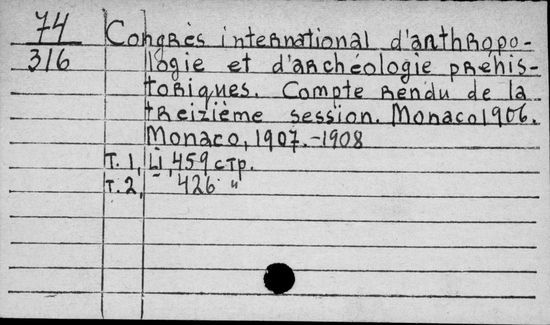 74
316
Congrès international d'anthropo-
logie et d'archéologie préhis-
toriques. Compte rendu de la
treizième session. Monaco 1906.
Monaco, 1907.-1908
Т. 1, LI, 459 стр.
Т. 2, 426 "